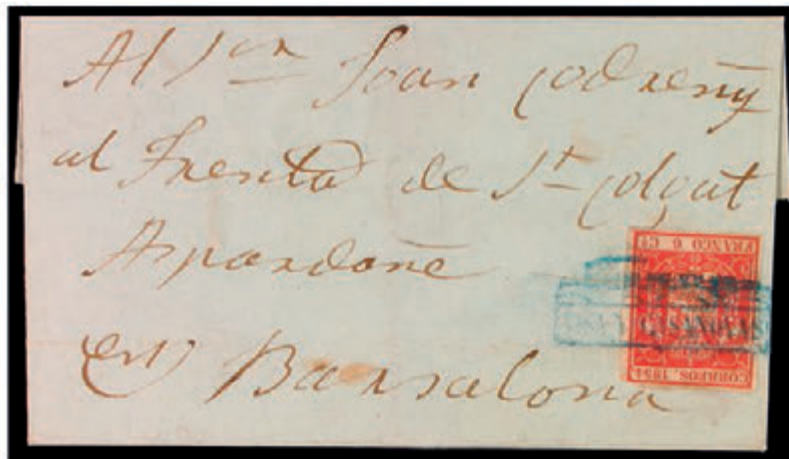 Al Sor Joan Codreny
al Frenta de St Colgat
Aspardañe
en Barsalona
FRANCO 6 Cs
CASANOVAS
CORREOS. 1854